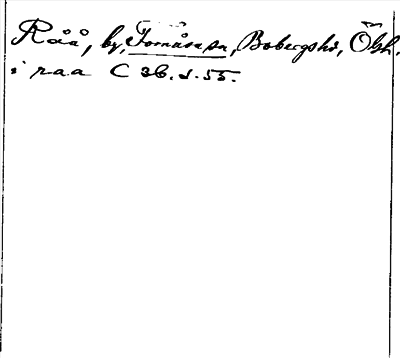 Råå, by, Fornåsa sn, Bobergs hd, Ögl.
i raa C 36. s. 55.